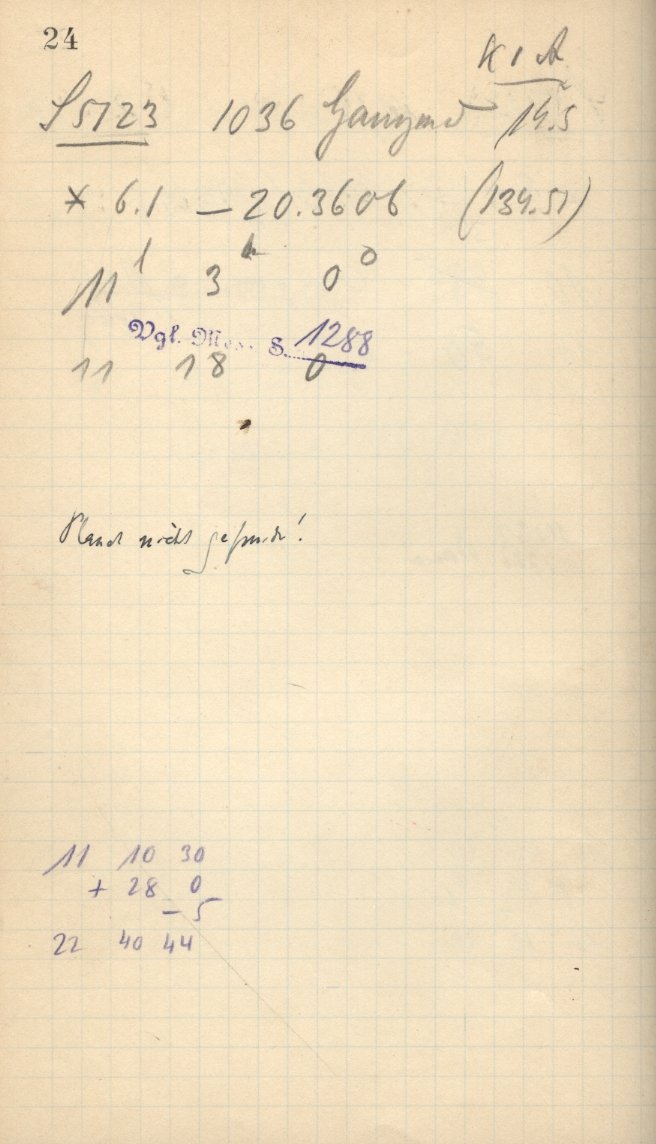 24
K I A
S5123 1036 Ganymed 14.5
* 6.1 – 20.3606 (134.51)
11 3 0
Vgl. S. 1288
11 18 0
nicht gefunden!
11 10 30
+ 28 0
– 5
22 40 44